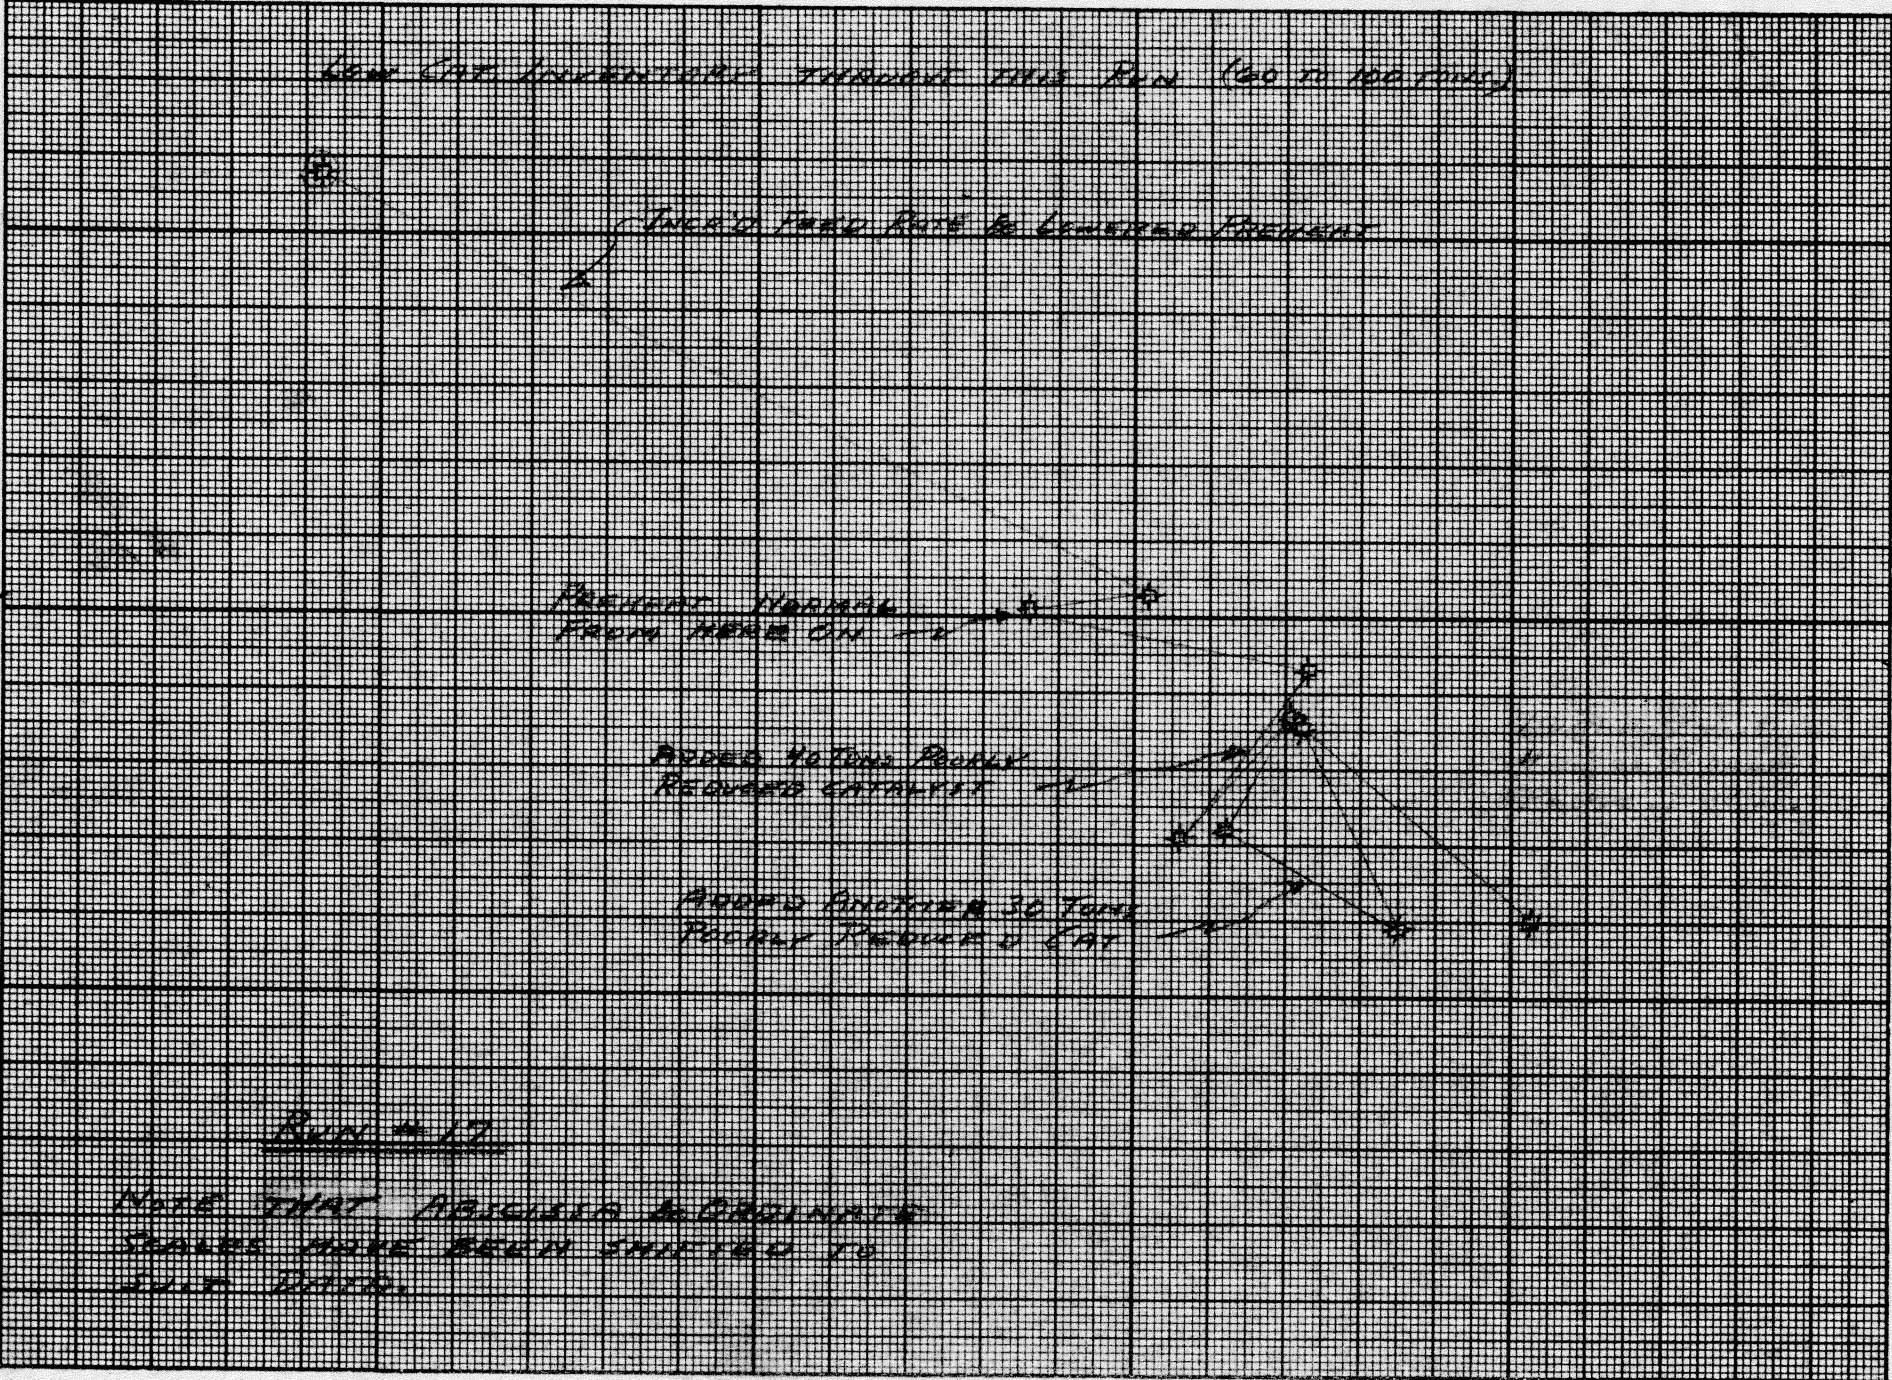 LOW CAT. INVENTORY THRUOUT THIS RUN (60 TO 100 TONS)
INCR'D FEED RATE & LOWERED PREHEAT
PREHEAT NORMAL
FROM HERE ON
ADDED 40 TONS POORLY
REDUCED CATALYST
ADDED ANOTHER 30 TONS
POORLY REDUCED CAT
RUN # 12
NOTE THAT ABSCISSA & ORDINATE
SCALES HAVE BEEN SHIFTED TO
SUIT DATA.